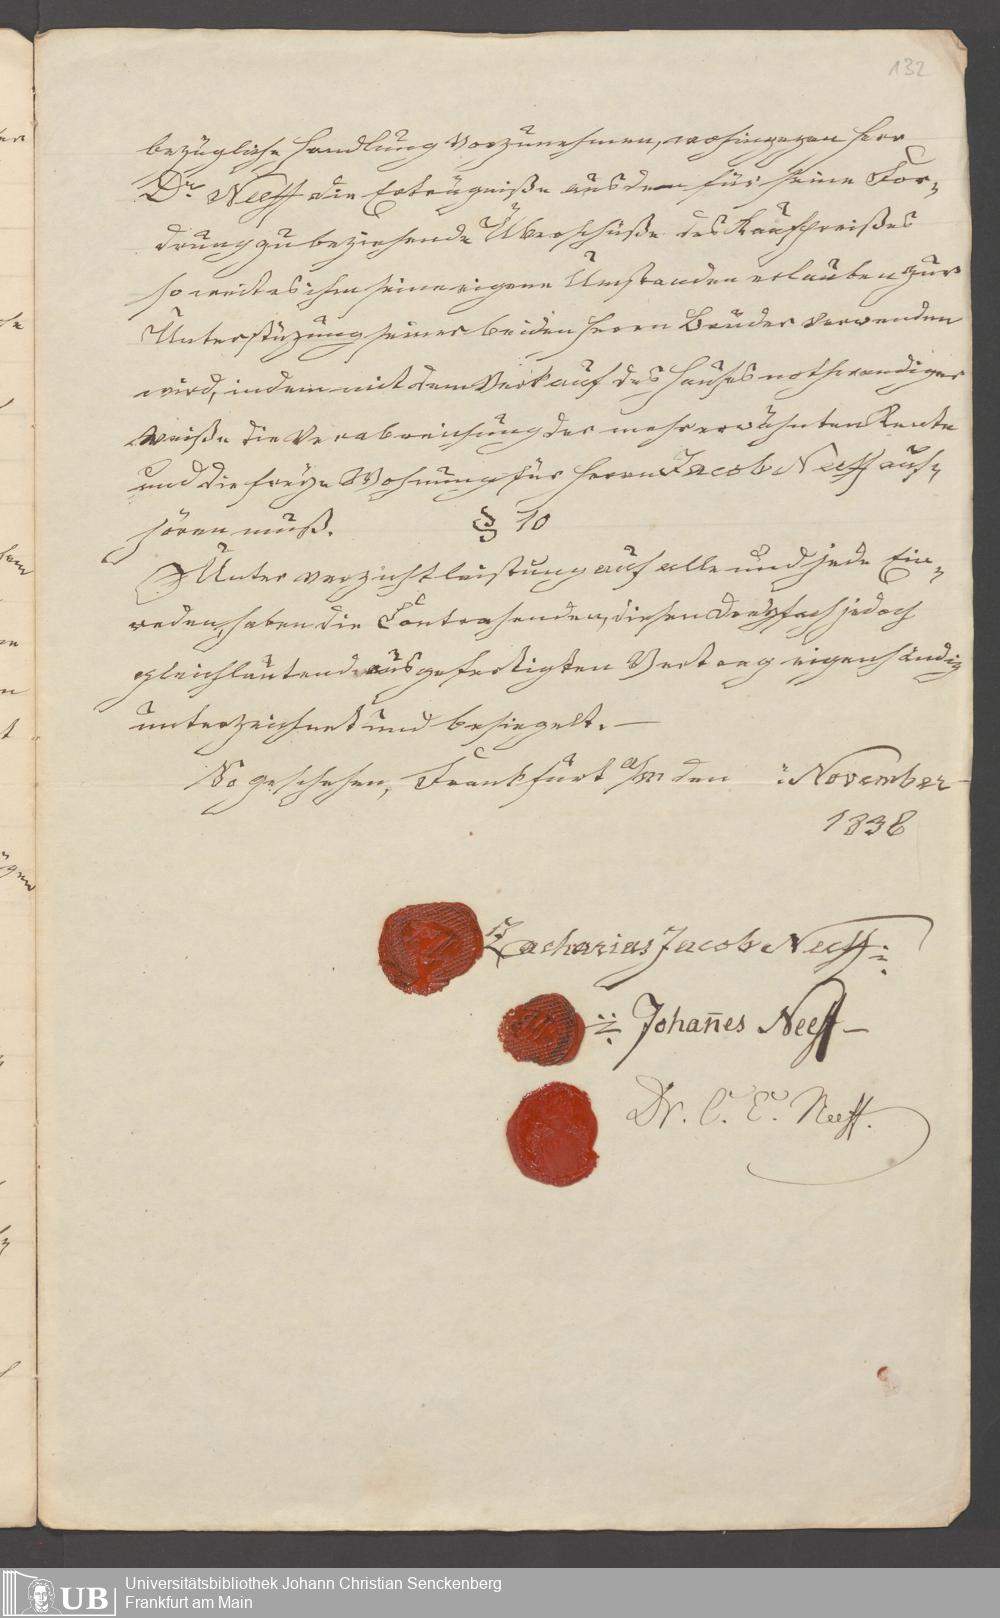 132
bezügliche Handlung vorzunehmen, wohingegen Herr
Dr. Neeff die Erträgniße aus dem für seine For-
drung zu beziehende Überschüße des Kaufpreißes
so weit es ihm seine eigene Umstanden erlauben zur
Unterstüzung seiner beiden Herrn Brüder verwenden
wird, indem mit dem Verkauf des Hauses nothwendiger
Weiße die Verabreichung der mehrerwähnten Rente
und die freye Wohnung für Herrn Jacob Neeff auf-
hören muß.
§ 10
Unter Verzichtleistung auf alle und jede Ein-
reden, haben die Contrahenden, diesen dreyfach jedoch
gleichlautend ausgefertigten Vertrag eigenhändig
unterzeichnet und besiegelt. —
So geschehen, Frankfurt a/m den November
1838
Zacharias Jacob Neeff
Johan̄es Neeff
Dr. C. E. Neeff.
UB
Universitätsbibliothek Johann Christian Senckenberg
Frankfurt am Main